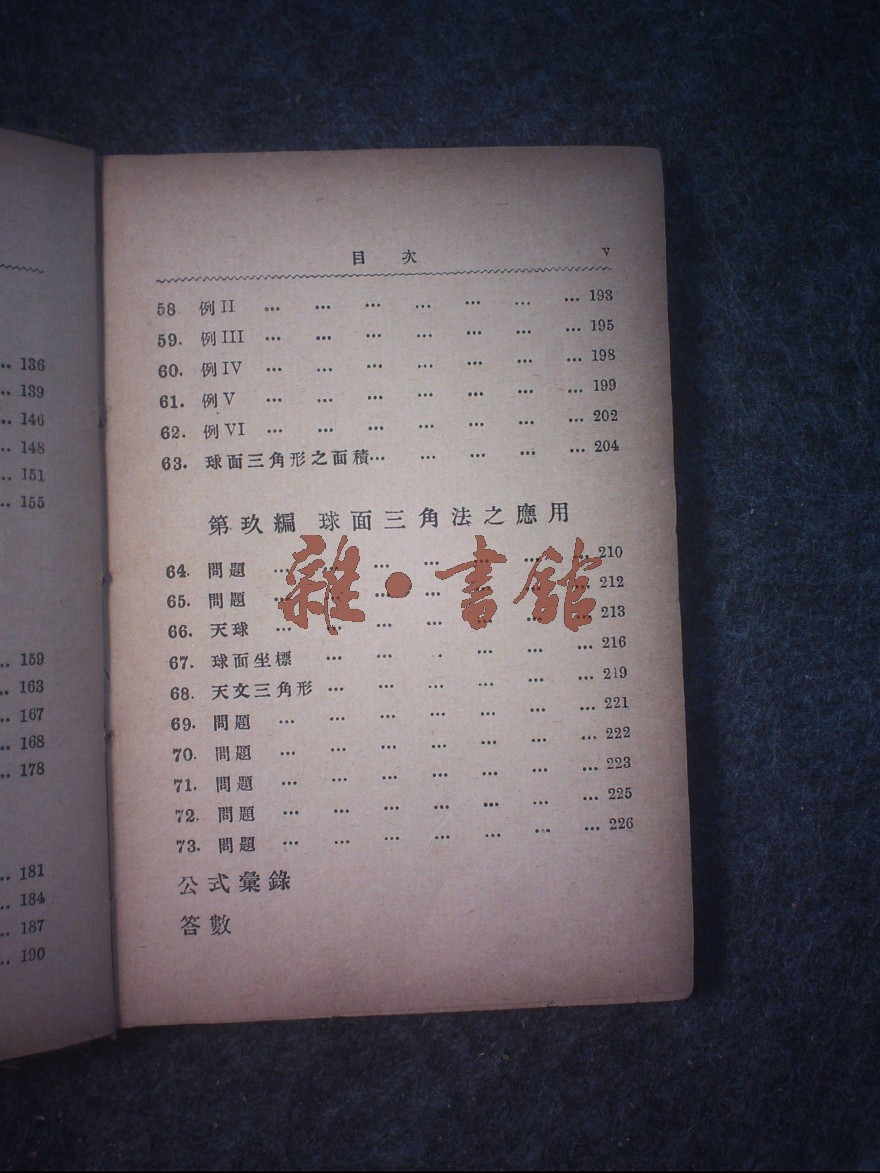 .. 136
.. 139
.. 146
.. 148
.. 151
.. 155
.. 159
.. 163
.. 167
.. 168
.. 178
.. 181
.. 184
.. 187
.. 190
目 次 v
58 例II … … … … … … … 193
59. 例III … … … … … … … 195
60. 例IV … … … … … … … 198
61. 例V … … … … … … … 199
62. 例VI … … … … … … … 202
63. 球面三角形之面積… … … … … 204
第玖編 球面三角法之應用
64. 問題 … … … … … … … 210
65. 問題 … … … … … … … 212
66. 天球 … … … … … … … 213
67. 球面坐標 … … . … … … 216
68. 天文三角形 … … … … … … 219
69. 問題 … … … … … … … 221
70. 問題 … … … … … … … 222
71. 問題 … … … … … … … 223
72. 問題 … … … … … … … 225
73. 問題 … … … … … … … 226
公式彙錄
答數
雜·書館